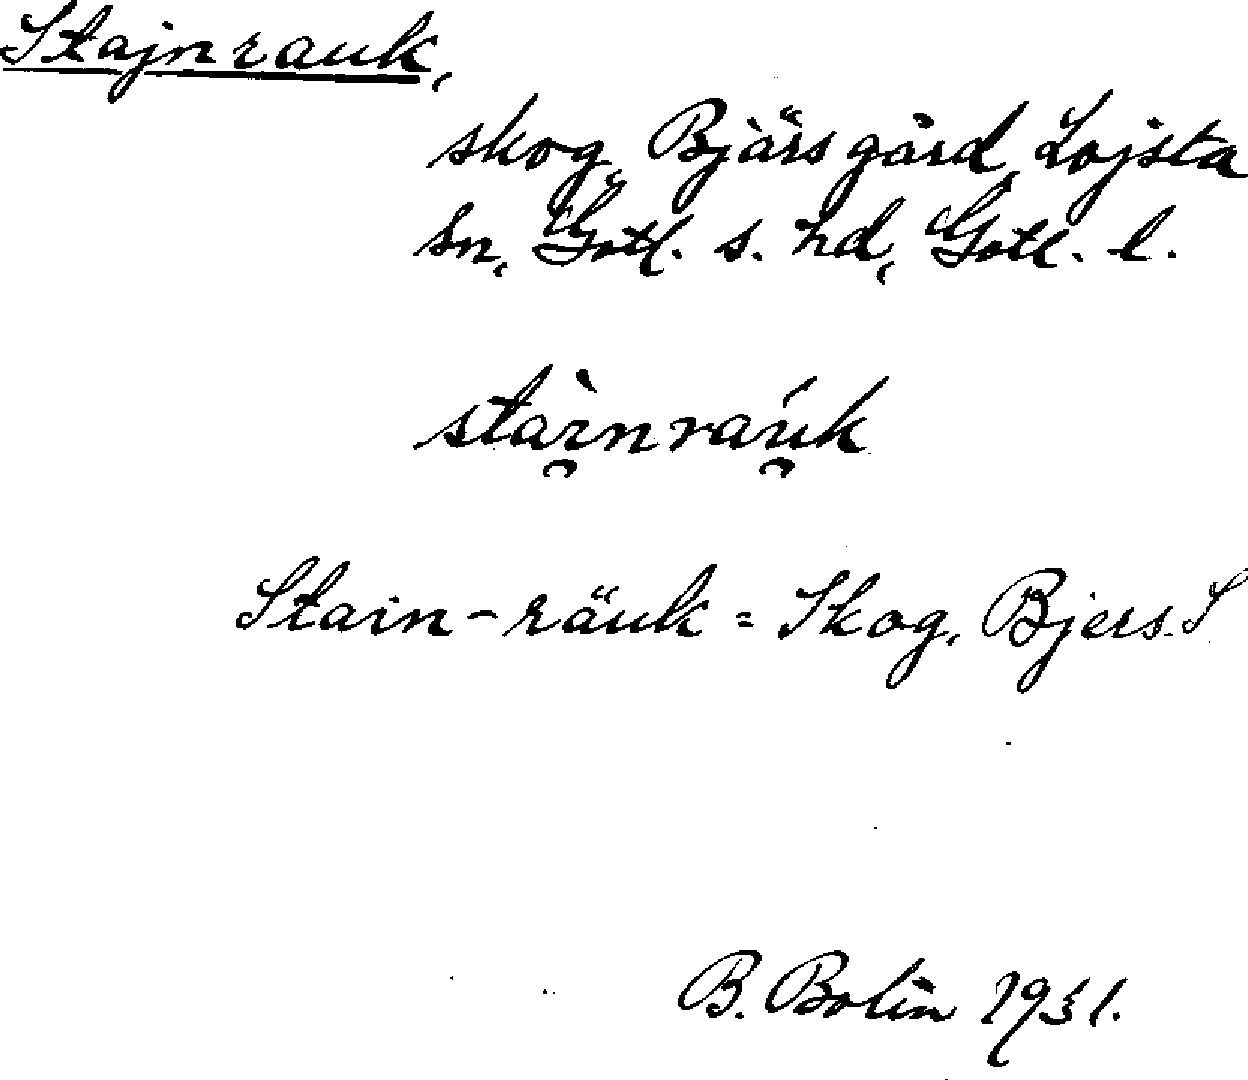 Stajnrauk,
skog, Bjärs gård, Lojsta
sn, Gotl. s. hd, Gotl. l.
staì̯nraú̯k
Stain-räuk = Skog, Bjers. S
B. Bolin 1931.